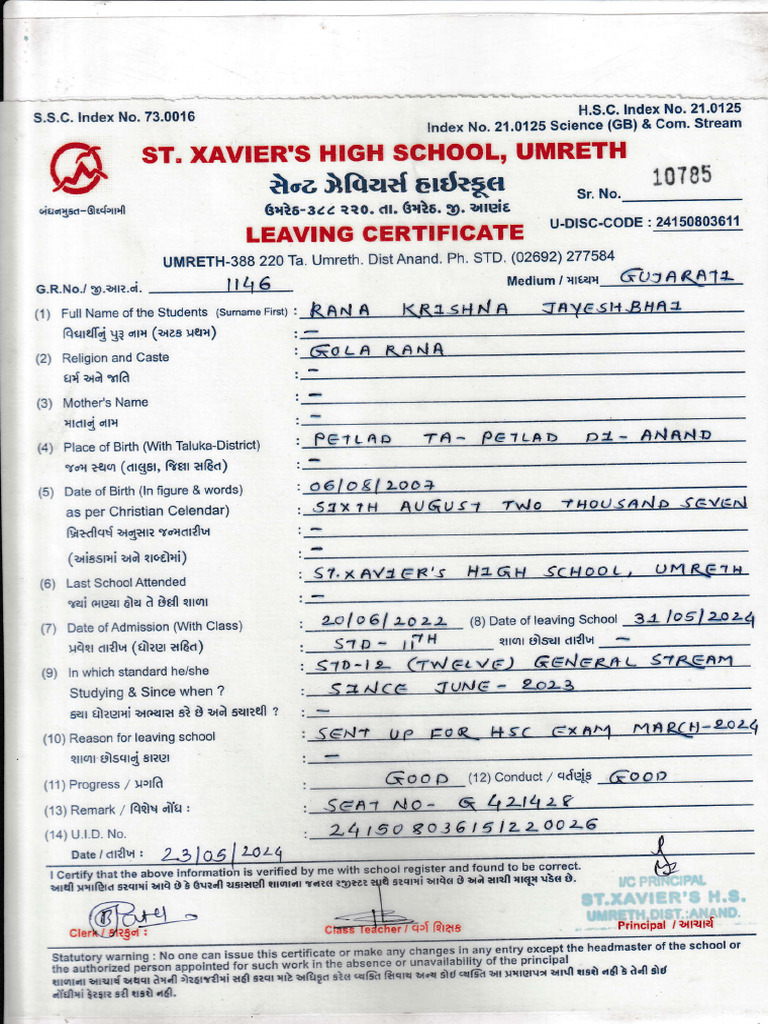 S.S.C. Index No. 73.0016
H.S.C. Index No. 21.0125
Index No. 21.0125 Science (GB) & Com. Stream
ST. XAVIER'S HIGH SCHOOL, UMRETH
સેન્ટ ઝેવિયર્સ હાઈસ્કૂલ
Sr. No. 10785
બંધનમુક્ત-ઊર્ધ્વગામી
ઉમરેઠ-૩૮૮ ૨૨૦. તા. ઉમરેઠ. જી. આણંદ
U-DISC-CODE : 24150803611
LEAVING CERTIFICATE
UMRETH-388 220 Ta. Umreth. Dist Anand. Ph. STD. (02692) 277584
G.R.No./ જી.આર.નં. 1146 Medium / માધ્યમ GUJARATI
(1) Full Name of the Students (Surname First) : RANA KRISHNA JAYESHBHAI
વિદ્યાર્થીનું પુરૂ નામ (અટક પ્રથમ) : –
(2) Religion and Caste : GOLA RANA
ધર્મ અને જાતિ : –
(3) Mother's Name : –
માતાનું નામ : –
(4) Place of Birth (With Taluka-District) : PETLAD TA- PETLAD DI- ANAND
જન્મ સ્થળ (તાલુકા, જિલ્લા સહિત) : –
(5) Date of Birth (In figure & words) : 06/08/2007
as per Christian Celendar) : SIXTH AUGUST TWO THOUSAND SEVEN
ખ્રિસ્તીવર્ષ અનુસાર જન્મતારીખ : –
(આંકડામાં અને શબ્દોમાં) : –
(6) Last School Attended : ST.XAVIER'S HIGH SCHOOL, UMRETH
જ્યાં ભણ્યા હોય તે છેલ્લી શાળા : –
(7) Date of Admission (With Class) : 20/06/2022 (8) Date of leaving School 31/05/2024
પ્રવેશ તારીખ (ધોરણ સહિત) : STD- 11TH શાળા છોડ્યા તારીખ –
(9) In which standard he/she : STD-12 (TWELVE) GENERAL STREAM
Studying & Since when ? : SINCE JUNE- 2023
કયા ધોરણમાં અભ્યાસ કરે છે અને કયારથી ? : –
(10) Reason for leaving school : SENT UP FOR HSC EXAM MARCH-2024
શાળા છોડવાનું કારણ : –
(11) Progress / પ્રગતિ : GOOD (12) Conduct / વર્તણૂંક GOOD
(13) Remark / વિશેષ નોંધ : : SEAT NO- G 421428
(14) U.I.D. No. : 241508036151220026
Date / તારીખ : 23/05/2024
I Certify that the above information is verified by me with school register and found to be correct.
આથી પ્રમાણિત કરવામાં આવે છે કે ઉપરની ચકાસણી શાળાના જનરલ રજીસ્ટર સાથે કરવામાં આવેલ છે અને સાચી માલૂમ પડેલ છે.
I/C PRINCIPAL
ST.XAVIER'S H.S.
UMRETH,DIST.:ANAND.
Clerk / કારકુન : Class Teacher / વર્ગ શિક્ષક Principal / આચાર્ય
Statutory warning : No one can issue this certificate or make any changes in any entry except the headmaster of the school or
the authorized person appointed for such work in the absence or unavailability of the principal
શાળાના આચાર્ય અથવા તેમની ગેરહાજરીમાં સહી કરવા માટે અધિકૃત કરેલ વ્યક્તિ સિવાય અન્ય કોઈ વ્યક્તિ આ પ્રમાણપત્ર આપી શકશે નહી કે તેની કોઈ
નોંધીમાં ફેરફાર કરી શકશે નહી.